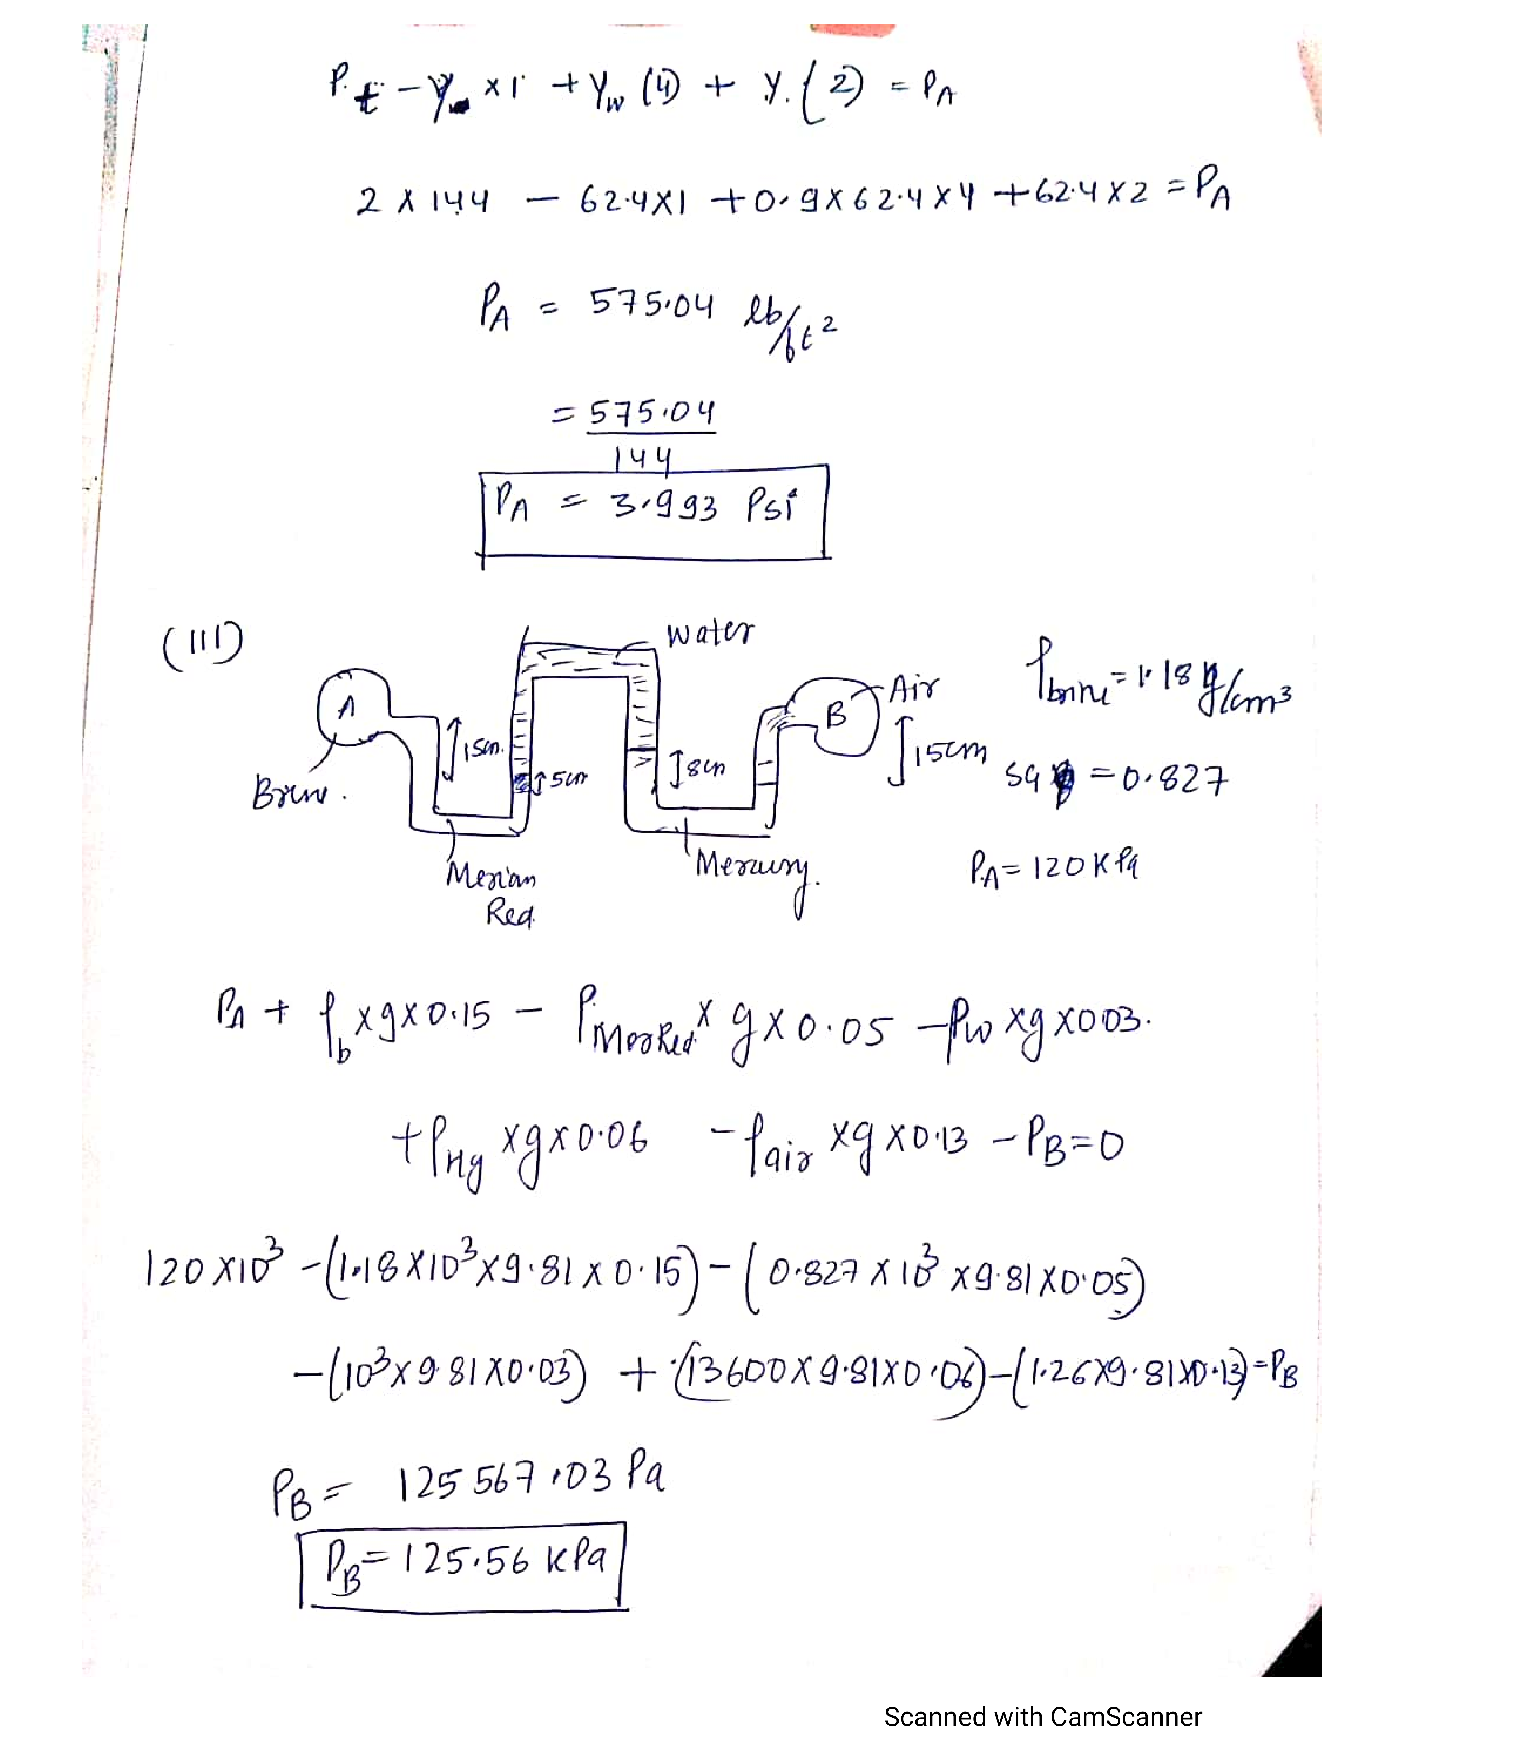 P.t - γ × 1 + γw (4) + γ. (2) = PA
2 × 144 - 62.4×1 + 0.9×62.4×4 + 62.4×2 = PA
PA = 575.04 lb/ft²
= 575.04
144
PA = 3.993 Psi
(III)
Water
A
B
Air
ρbrine = 1.18 g/cm³
15cm.
5cm
8cm
15cm
SG = 0.827
Brin.
Merian
Red.
Mercury.
PA = 120 KPa
PA + ρb × g × 0.15 - ρMerRed × g × 0.05 - ρw × g × 0.03.
+ ρHg × g × 0.06 - ρair × g × 0.13 - PB = 0
120 × 10³ - (1.18 × 10³ × 9.81 × 0.15) - (0.827 × 10³ × 9.81 × 0.05)
- (10³ × 9.81 × 0.03) + (13600 × 9.81 × 0.06) - (1.26 × 9.81 × 0.13) = PB
PB = 125567.03 Pa
PB = 125.56 KPa
Scanned with CamScanner